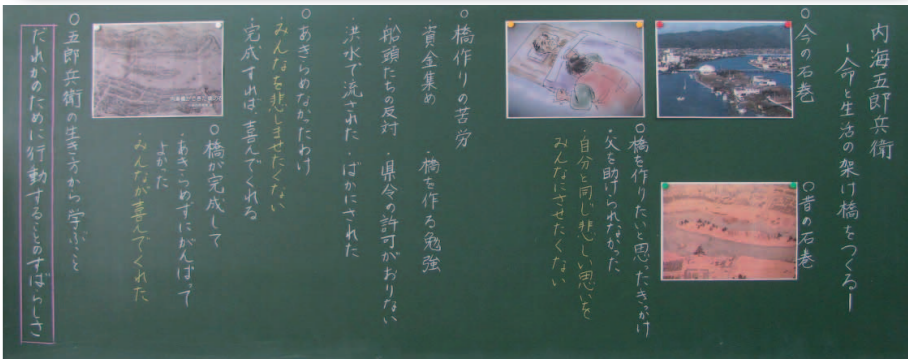 内海五郎兵衛
―命と生活の架け橋をつくる―
○今の石巻
○昔の石巻
○橋を作りたいと思ったきっかけ
父を助けられなかった
・自分と同じ悲しい思いを
みんなにさせたくない
○橋作りの苦労
・資金集め ・橋を作る勉強
・船頭たちの反対 ・県令の許可がおりない
・洪水で流された ・ばかにされた
○あきらめなかったわけ
・みんなを悲しませたくない
・完成すれば、喜んでくれる
○橋が完成して
・あきらめずにがんばって
よかった
・みんなが喜んでくれた
○五郎兵衛の生き方から学ぶこと
だれかのために行動することのすばらしさ